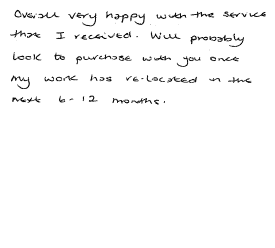 Overall very happy with the service
that I received. Will probably
look to purchase with you once
my work has re-located in the
next 6-12 months.